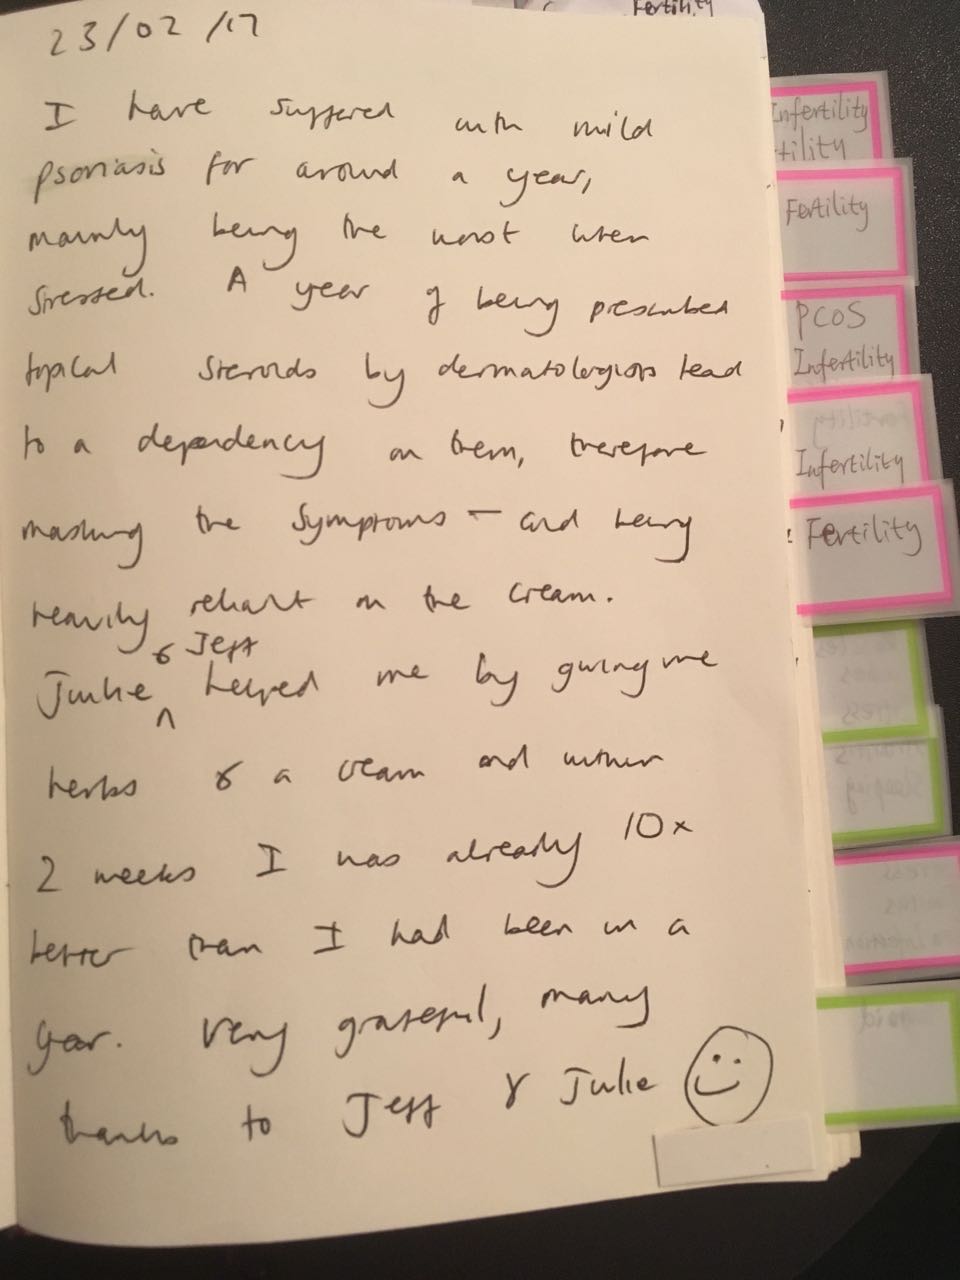 Fertility
23/02/17
I have suffered with mild
psoriasis for around a year,
mainly being the worst when
stressed. A year of being prescribed
topical steroids by dermatologists lead
to a dependency on them, therefore
masking the symptoms - and being
heavily reliant on the cream.
Julie & Jeff helped me by giving me
herbs & a cream and within
2 weeks I was already 10x
better than I had been in a
year. Very grateful, many
thanks to Jeff & Julie
Infertility
Fertility
PCOS
Infertility
Infertility
Fertility